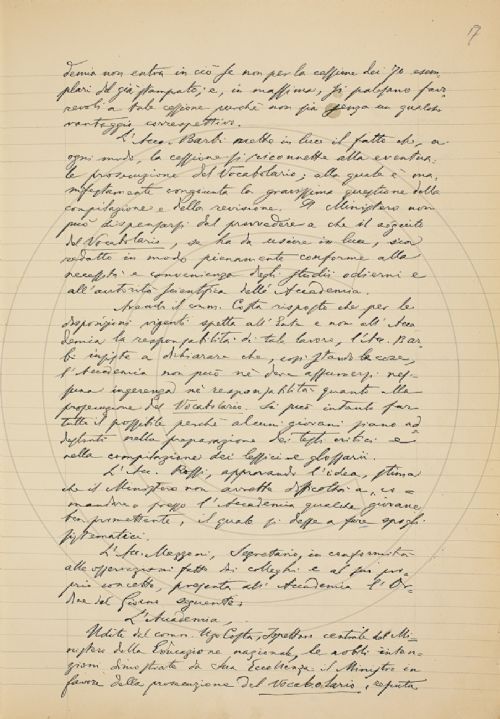 17
demia non entra in ciò se non per la cessione dei 70 esem=
plari del già stampato; e, in massima, si palesano favo=
revoli a tale cessione purchè non sia senza un qualche
vantaggio correspettivo.
L'Acc. Barbi mette in luce il fatto che, a
ogni modo, la cessione si riconnette alla eventua=
le prosecuzione del Vocabolario; alla quale è ma=
nifestamente congiunta la gravissima questione della
compilazione e della revisione. Il Ministero non
può dispensarsi dal provvedere a che il seguito
del Vocabolario, se ha da uscire in luce, sia
redatto in modo pienamente conforme alla
necessità e convenienza degli studii odierni e
all'autorità scientifica dell'Accademia.
Avendo il comm. Costa risposto che per le
disposizioni vigenti spetta all'Ente e non all'Acca
demia la responsabilità di tale lavoro, l'Acc. Bar=
bi insiste a dichiarare che, così stando le cose,
l'Accademia non può nè deve assumersi nes=
suna ingerenza nè responsabilità quanto alla
prosecuzione del Vocabolario. Si può intanto far
tutto il possibile perchè alcuni giovani siano ad
destrati nella preparazione dei testi critici e
nella compilazione dei lessici e glossarii.
L'Acc. Rossi, approvando l'idea, stima
che il Ministero non avrebbe difficoltà a
mandare presso l'Accademia qualche giovane
ben promettente, il quale si desse a fare spogli
sistematici.
L'Acc. Mazzoni, Segretario, in conformità
alle osservazioni fatte dai Colleghi e al suo pro=
prio concetto, presenta all'Accademia l'Or=
dine del Giorno seguente:
L'Accademia
Udite dal comm. Ugo Costa, Ispettore centrale del Mi=
nistero della Educazione nazionale, le nobili inten=
zioni dimostrate da Sua Eccellenza il Ministro in
favore della prosecuzione del Vocabolario,